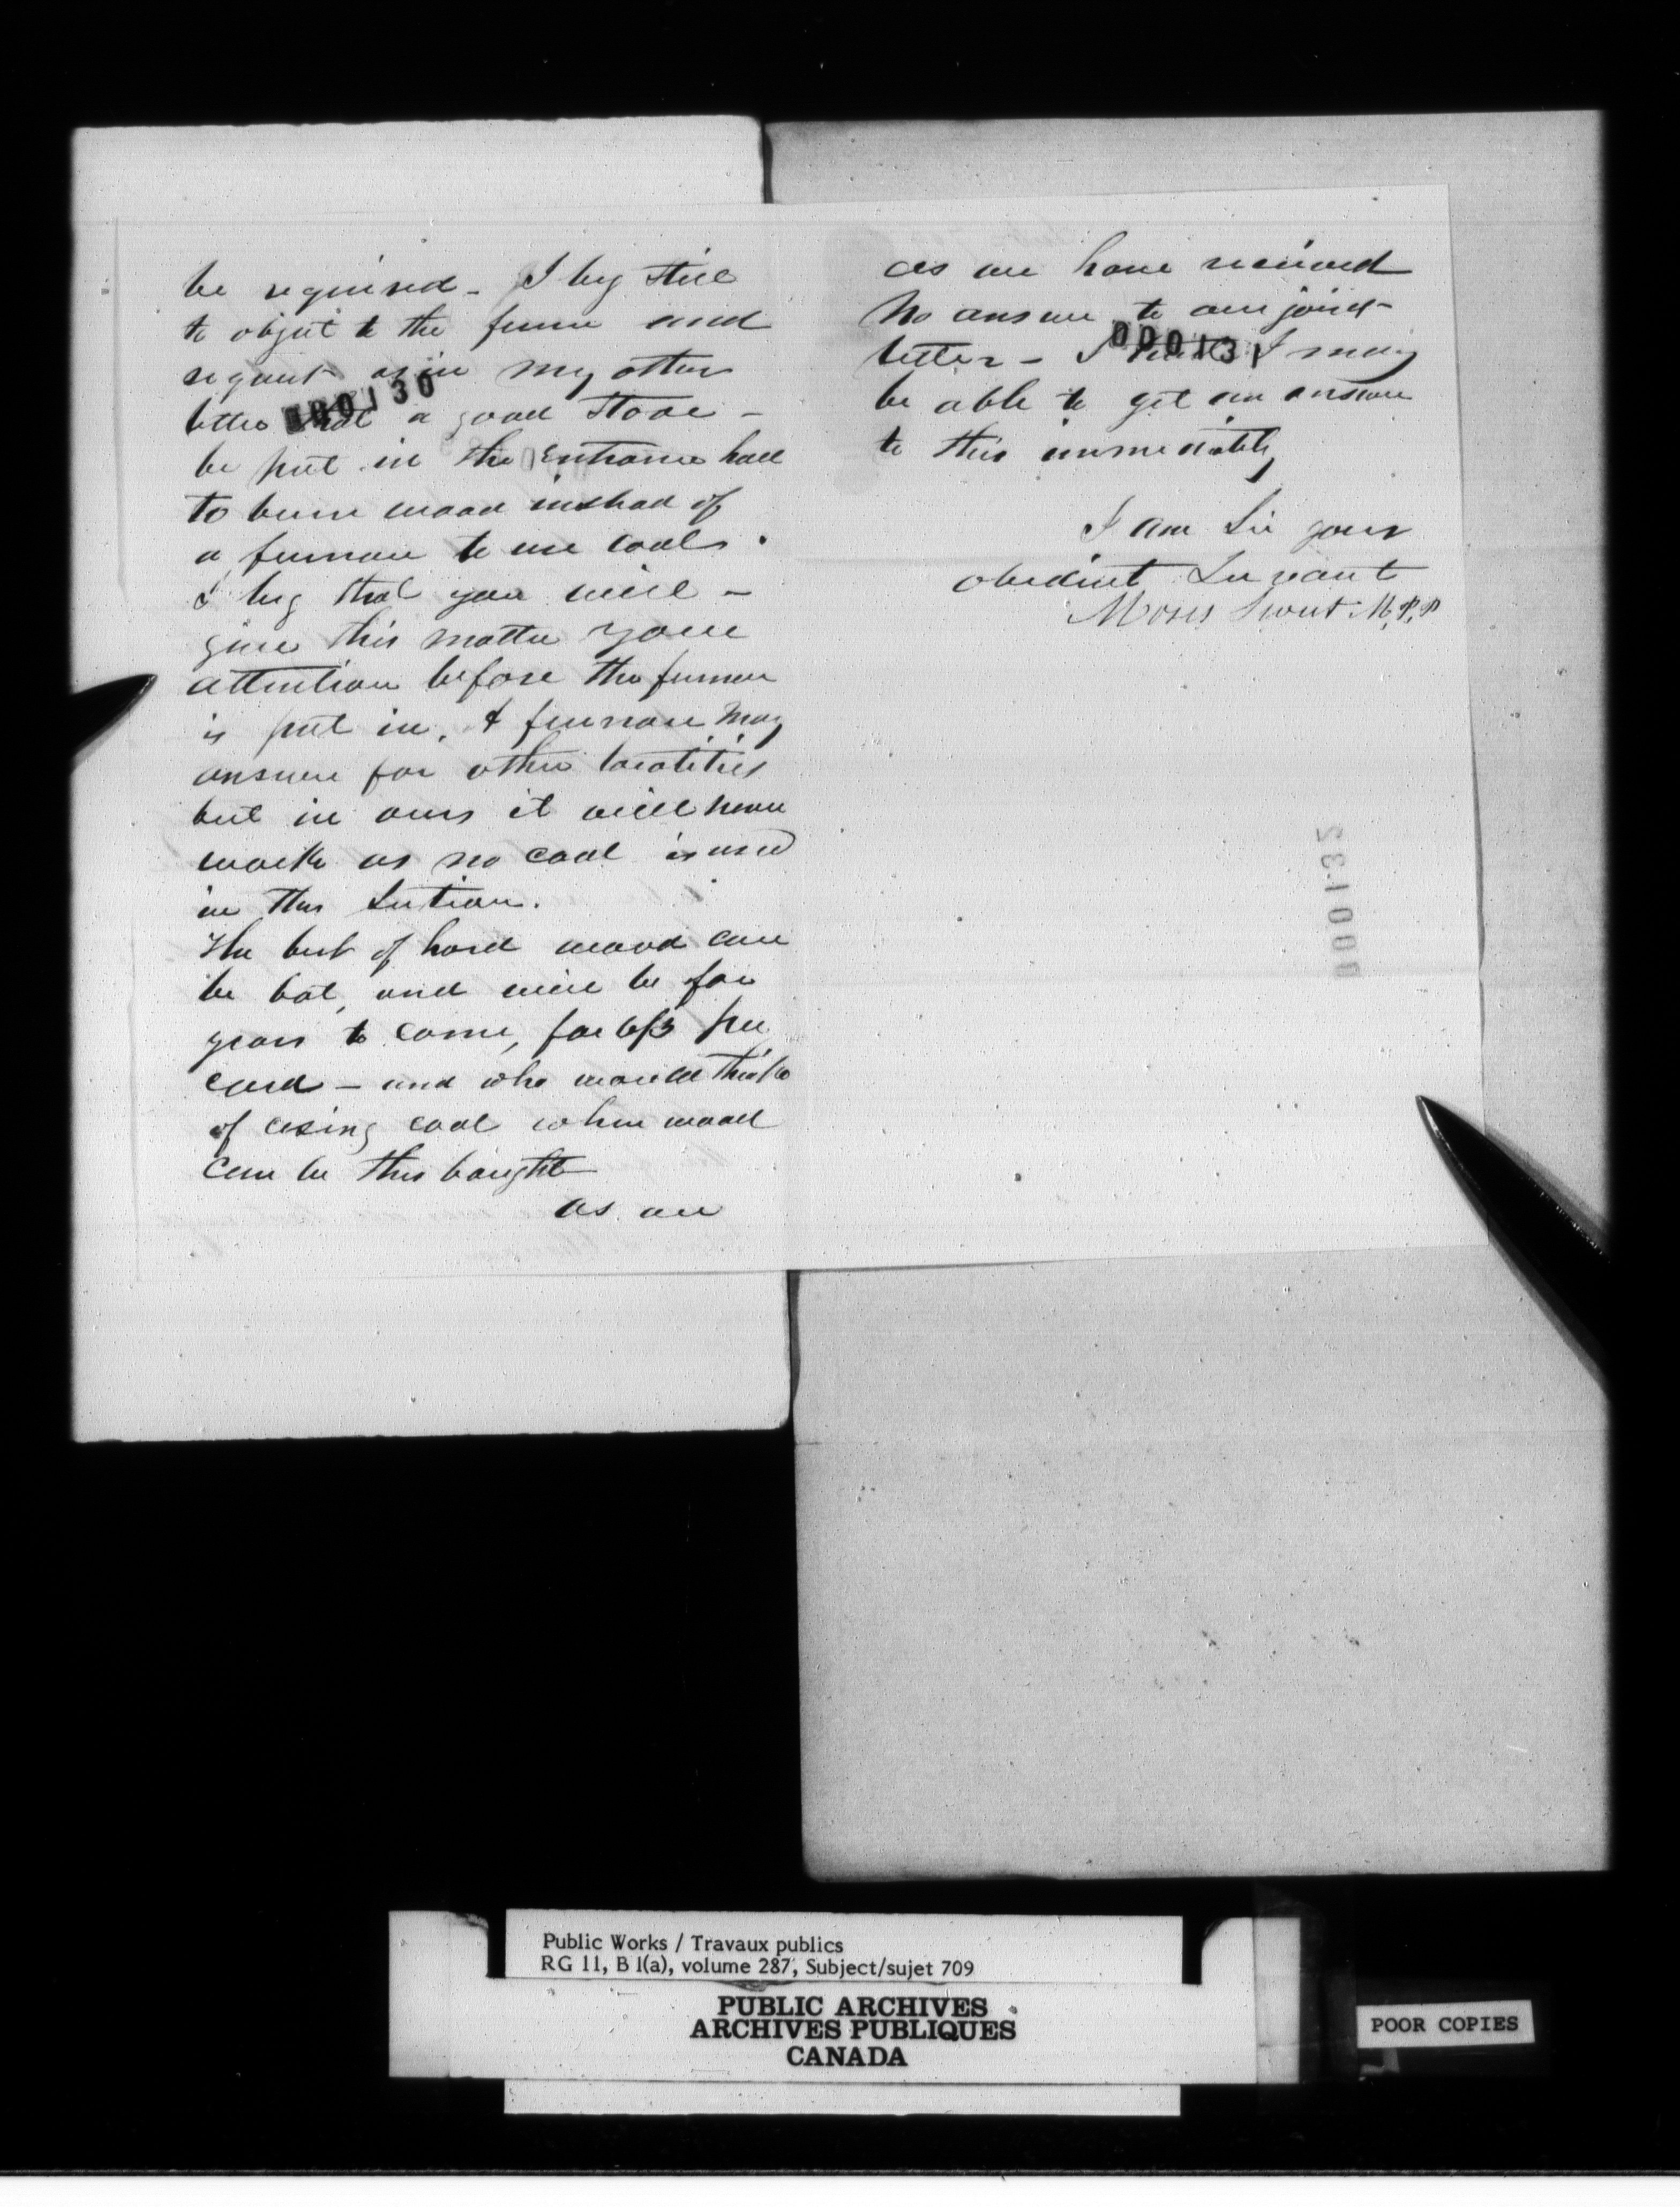 be required - I beg still
to object to the furnace and
request as in my other
letter that a good stove -
be put in the Entrance hall
to burn wood instead of
a furnace to use coals.
I beg that you will -
give this matter your
attention before the furnace
is put in, A furnace may
answer for other localities
but in ours it will never
work as no coal is used
in this Section.
The best of hard wood can
be bot, and will be for
years to come, for per
cord - and who would think
of using coal when wood
can be thus bought
as we
000130
as we have received
no answer to our joint
letter - I I may
be able to get an answer
to this immediately
I am Sir your
obedient Servant
Moses Swett M.P.P
000131
000132
Public Works / Travaux publics
RG 11, B 1(a), volume 287, Subject/sujet 709
PUBLIC ARCHIVES
ARCHIVES PUBLIQUES
CANADA
POOR COPIES